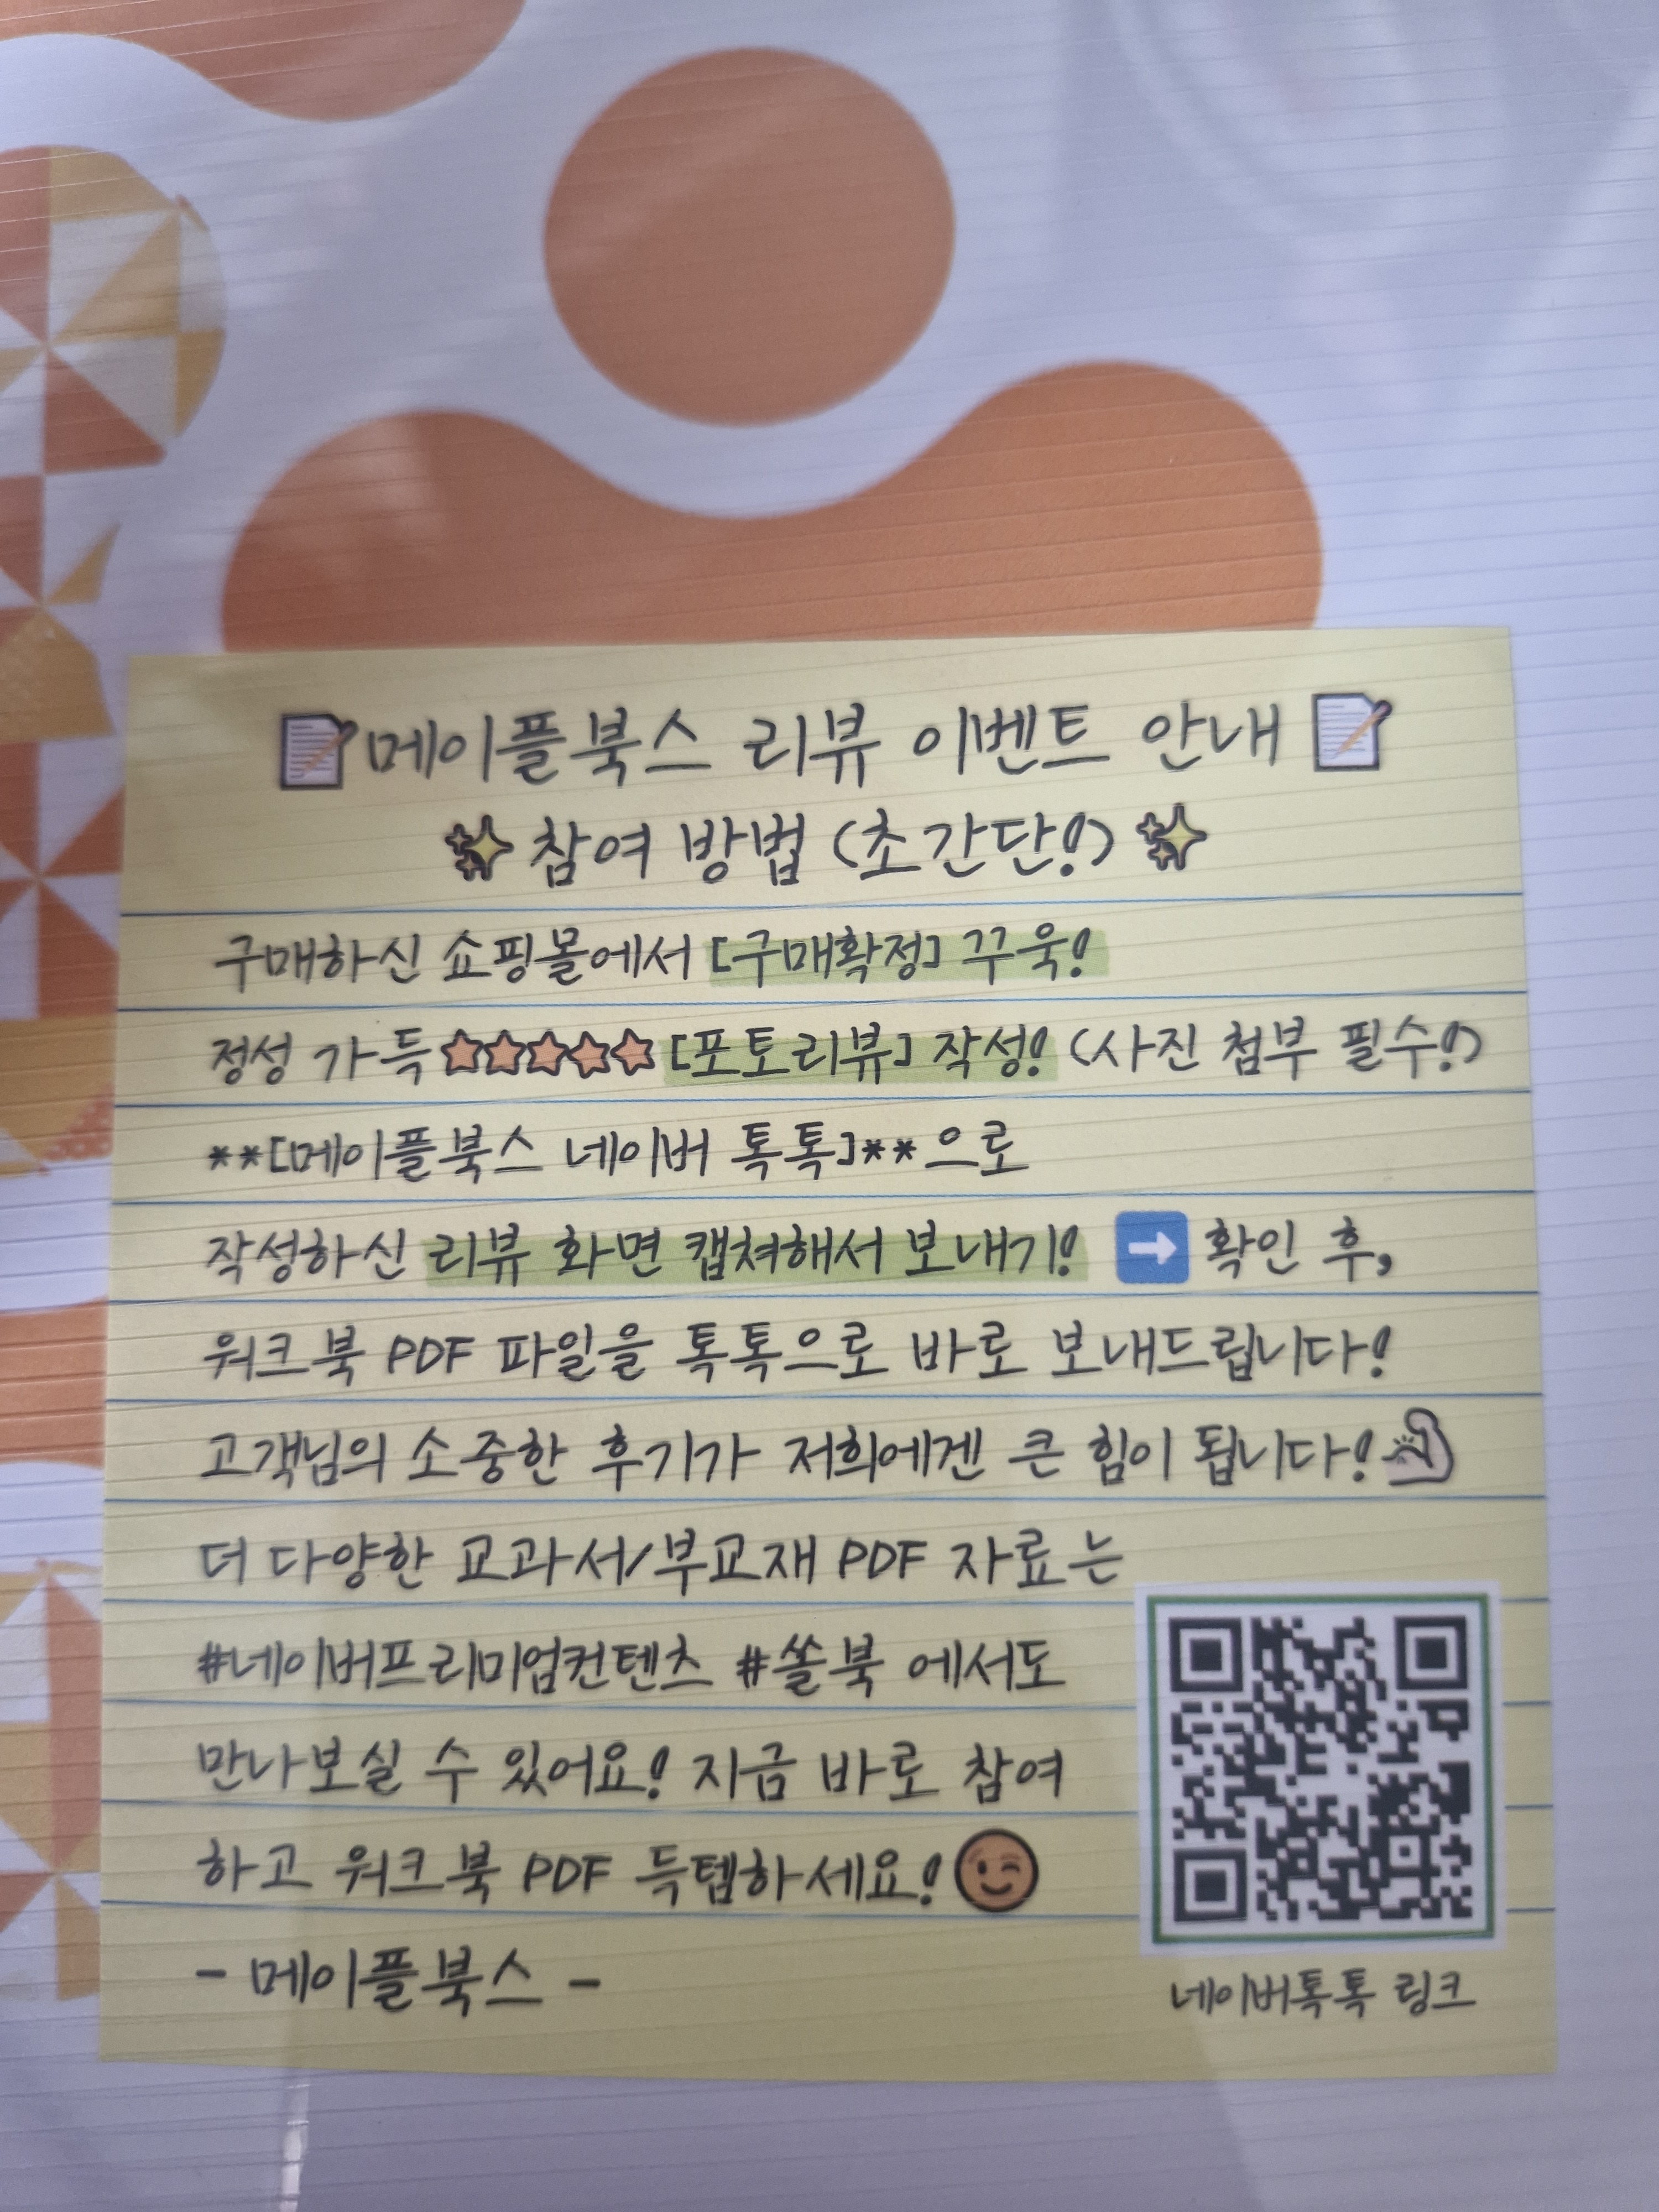 📝메이플북스 리뷰 이벤트 안내📝
✨참여 방법 (초간단!)✨
구매하신 쇼핑몰에서 [구매확정] 꾸욱!
정성 가득☆☆☆☆☆[포토리뷰] 작성! (사진 첨부 필수!)
**[메이플북스 네이버 톡톡]**으로
작성하신 리뷰 화면 캡쳐해서 보내기! ➡️ 확인 후,
워크북 PDF 파일을 톡톡으로 바로 보내드립니다!
고객님의 소중한 후기가 저희에겐 큰 힘이 됩니다!
더 다양한 교과서/부교재 PDF 자료는
#네이버프리미엄컨텐츠 #쏠북 에서도
만나보실 수 있어요! 지금 바로 참여
하고 워크북 PDF 득템하세요!😉
- 메이플북스 -
네이버톡톡 링크